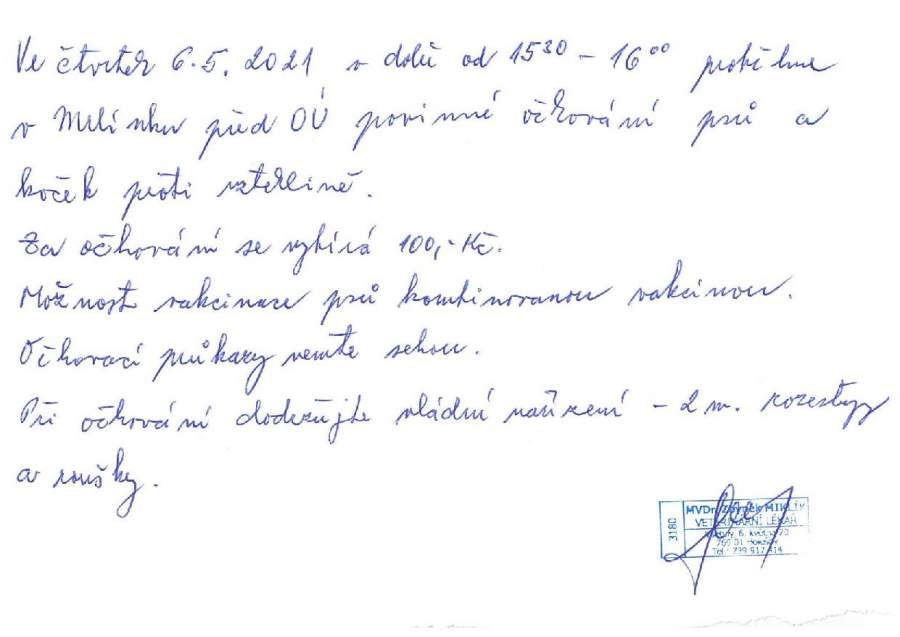 Ve čtvrtek 6.5. 2021 v době od 15³⁰ - 16⁰⁰ proběhne
v Mrlínku před OÚ povinné očkování psů a
koček proti vzteklině.
Za očkování se vybírá 100,- Kč.
Možnost vakcinace psů kombinovanou vakcínou.
Očkovací průkazy vemte sebou.
Při očkování dodržujte vládní nařízení - 2 m. rozestupy
a roušky.
3180
MVDr. Zbyněk MIKLÍK
VETERINÁRNÍ LÉKAŘ
6. května
769 01 Holešov
Tel.: